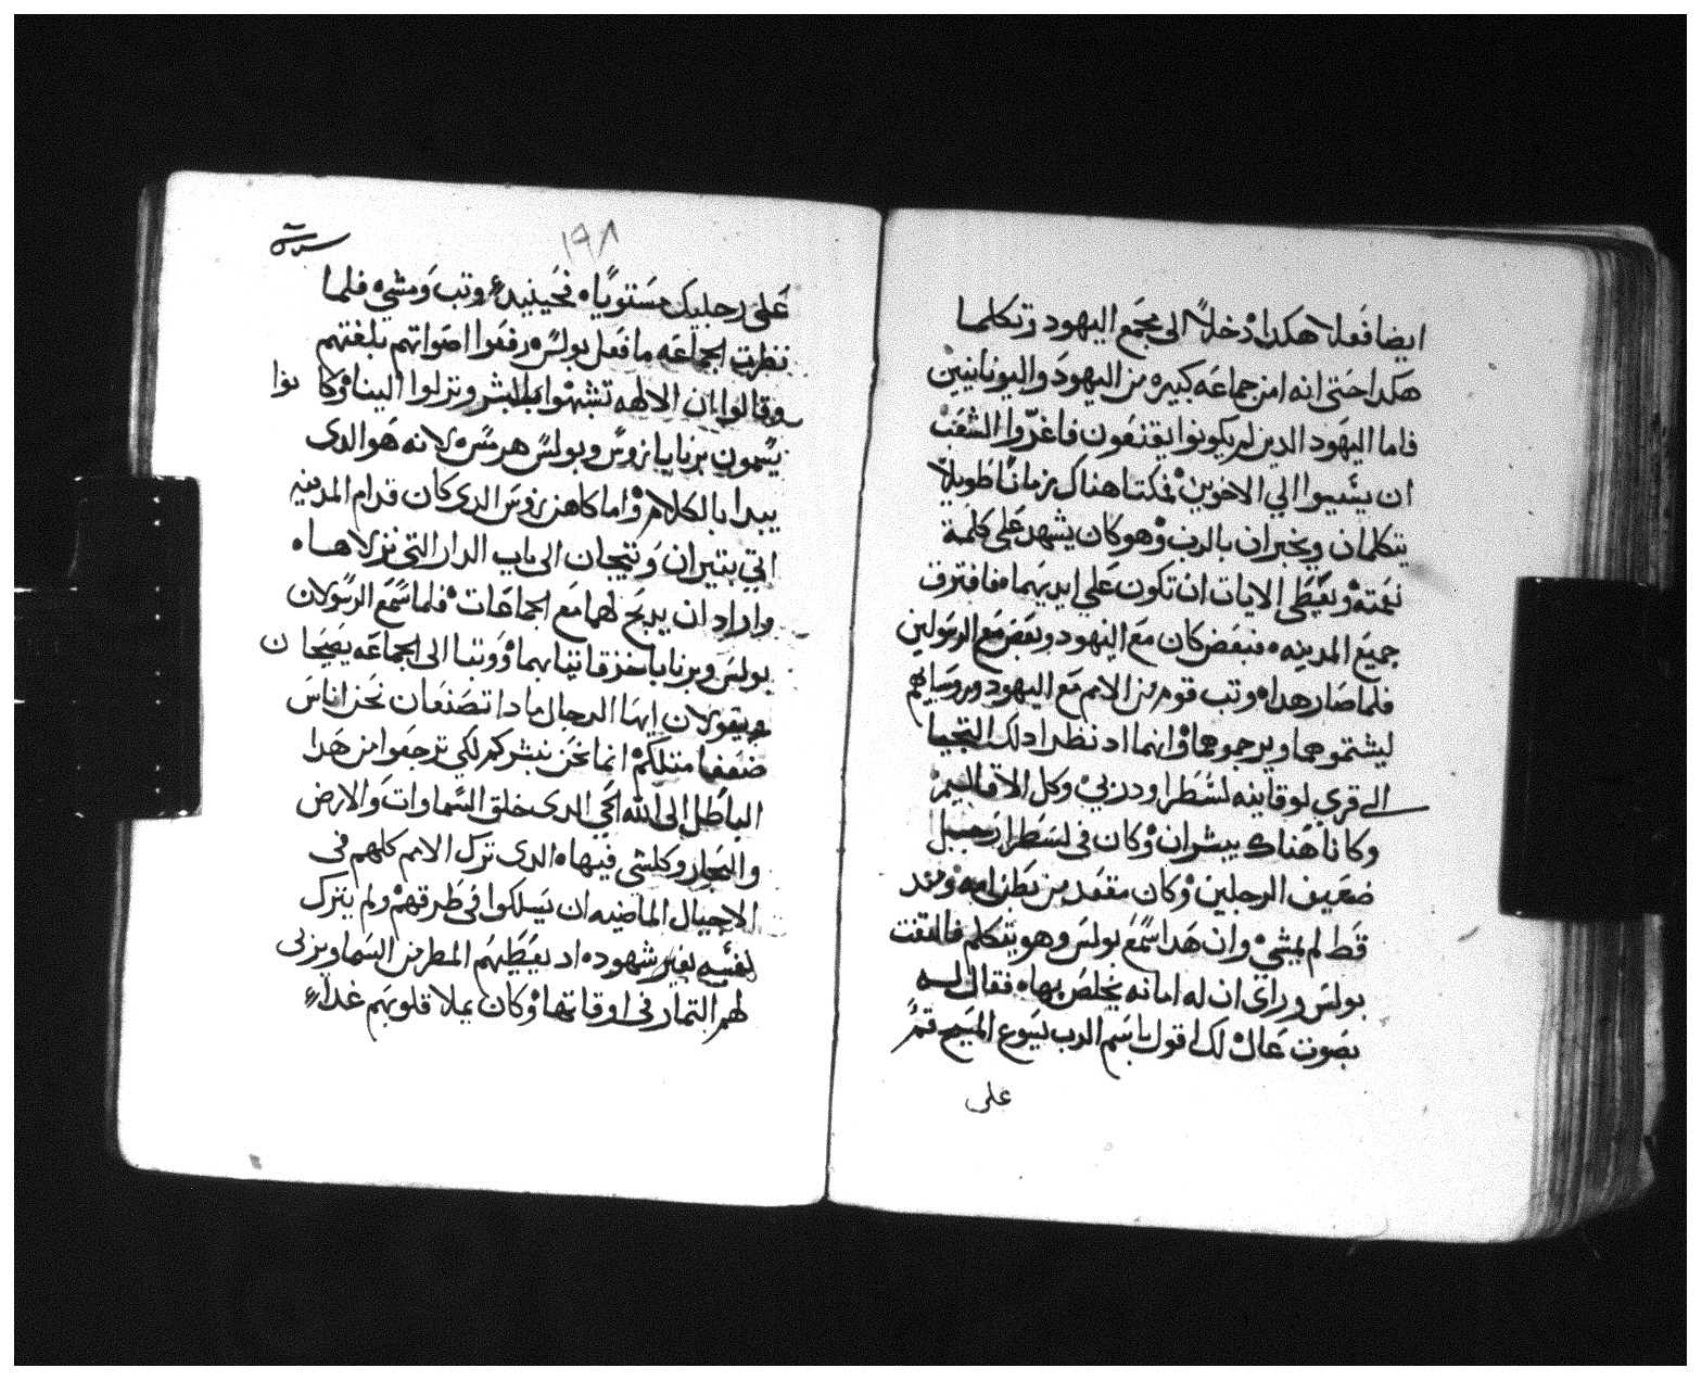 ايضا فعلا هكدا دخلا الى مجمع اليهود وتكلما
هكدا حتى انه امن جماعه كبيره من اليهود واليونانيين
فاما اليهود الدين لم يكونوا يقنعون فاغروا الشعب
ان يسيوا الي الاخوين فمكتا هناك زمانا طويلا
يتكلمان ويخبران بالرب وهو كان يشهد على كلمة
نعمته ويعطى الايات ان تكون على ايديهما فافترق
جميع المدينه فبعض كان مع اليهود وبعض مع الرسولين
فلما صار هدا وتب قوم من الامم مع اليهود وروسايهم
ليشتموهما ويرجموهما وانهما اد نظرا دلك التجيا
الي قري لوقانيه لسطرا ودربي وكل الاقاليم
وكانا هناك يبشران وكان في لسطرا رجل
ضعيف الرجلين وكان مقعد من بطن امه
قط لم يمشي وان هدا سمع بولس وهو يتكلم فالتفت
بولس وراى ان له امانه يخلص بها فقال له
بصوت عال لك اقول باسم الرب يسوع المسيح قم
على
١٩٨
على رجليك مستويا فحينيد وتب ومشي فلما
نظرت الجماعه ما فعل بولس رفعوا اصواتهم بلغتهم
وقالوا ان الالهه تشبهوا بالبشر ونزلوا الينا وكانوا
يسمون برنابا زوس وبولس هرمس لانه هو الدى
يبدا بالكلام واما كاهن زوس الدى كان قدام المدينه
اتي بتيران وتيجان الى باب الدار التي نزلاها
واراد ان يدبح لهما مع الجماعات فلما سمع الرسولان
بولس وبرنابا خزقا تيابهما ووتبا الى الجماعه يصيحان
ويقولان ايها الرجال مادا تصنعان نحن اناس
ضعفا متلكم انما نحن نبشركم لكي ترجعوا من هدا
الباطل الى الله الحي الدى خلق السماوات والارض
والبحار وكلشي فيها الدى ترك الامم كلهم في
الاجيال الماضيه ان يسلكوا في طرقهم ولم يترك
نفسه بغير شهود اد يعطيهم المطر من السما ويربى
لهم التمار في اوقاتها وكان يملا قلوبهم غدا